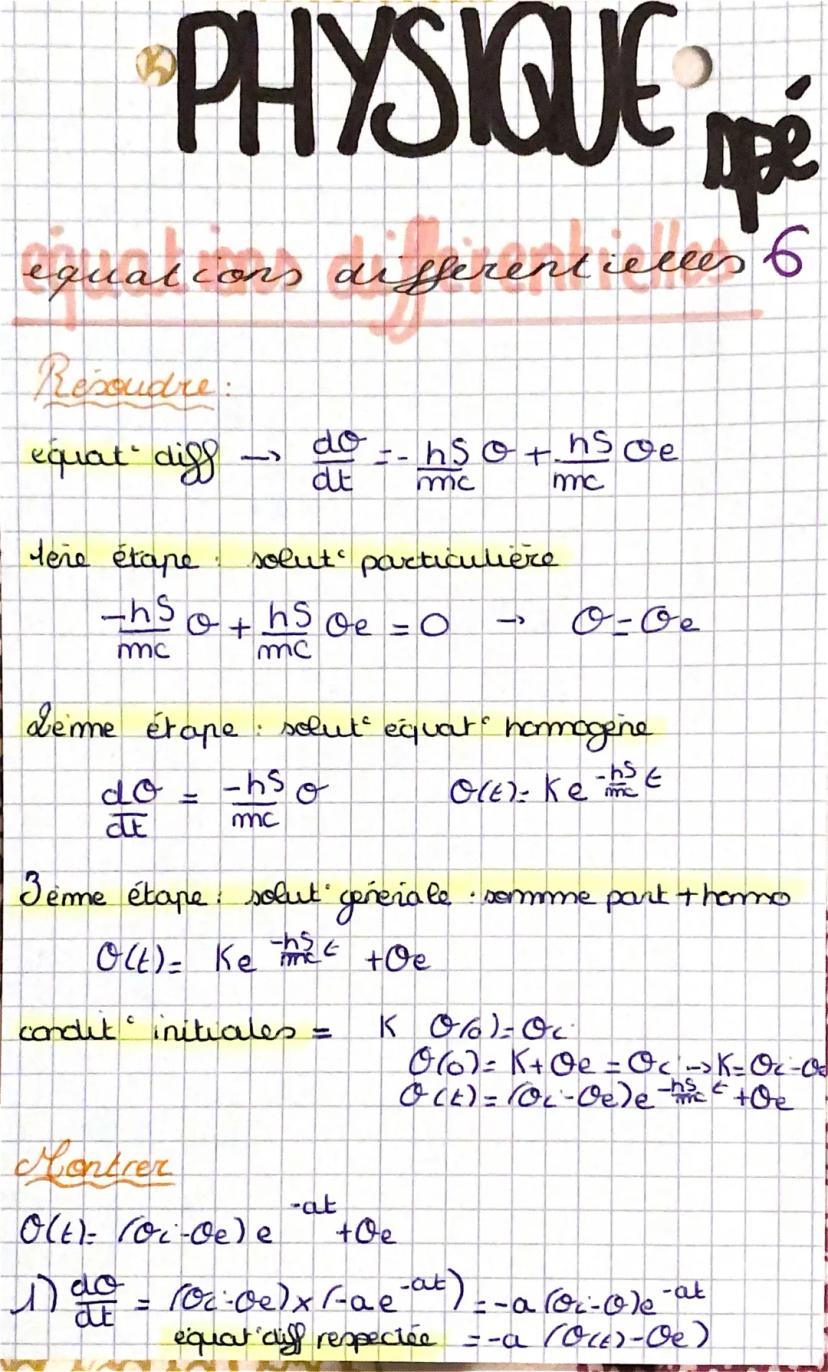 PHYSIQUE
spé
équations différentielles 6
Résoudre :
équat° diff → dθ/dt = - hS/mc θ + hS/mc θe
1ère étape : solut° particulière
-hS/mc θ + hS/mc θe = 0 → θ = θe
2ème étape : solut° équat° homogène
dθ/dt = -hS/mc θ θ(t) = K e^(-hS/mc t)
3ème étape : solut° générale : somme part + homo
θ(t) = K e^(-hS/mc t) + θe
condit° initiales = K θ(0) = θi
θ(0) = K + θe = θi → K = θi - θe
θ(t) = (θi - θe) e^(-hS/mc t) + θe
Montrer
θ(t) = (θi - θe) e^(-at) + θe
1) dθ/dt = (θi - θe) × (-a e^(-at)) = -a (θi - θ) e^(-at)
équat° diff respectée = -a (θ(t) - θe)